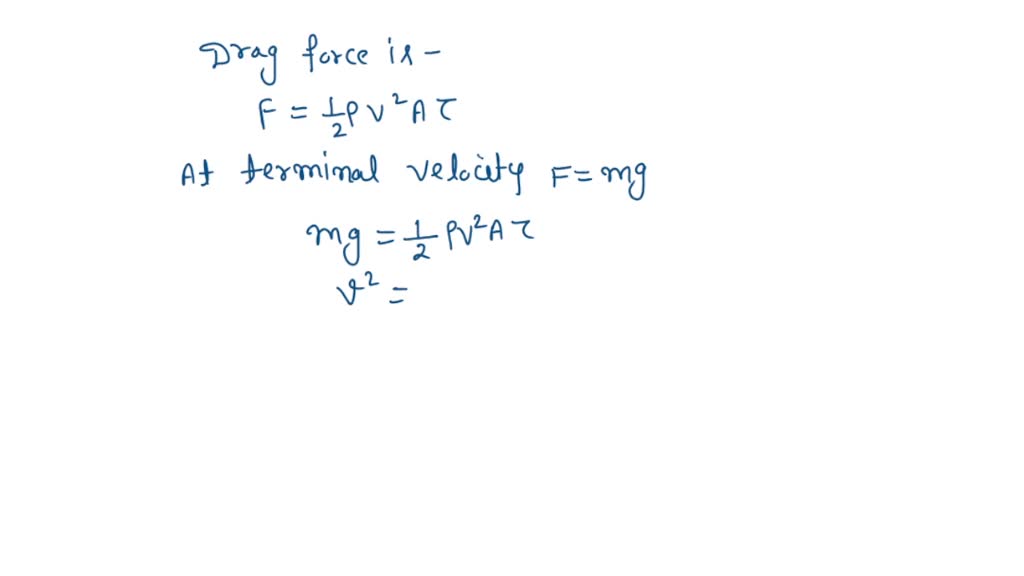 Drag force is -
F = 1/2 ρ v² A τ
At terminal velocity F = mg
mg = 1/2 ρv²A τ
v² =